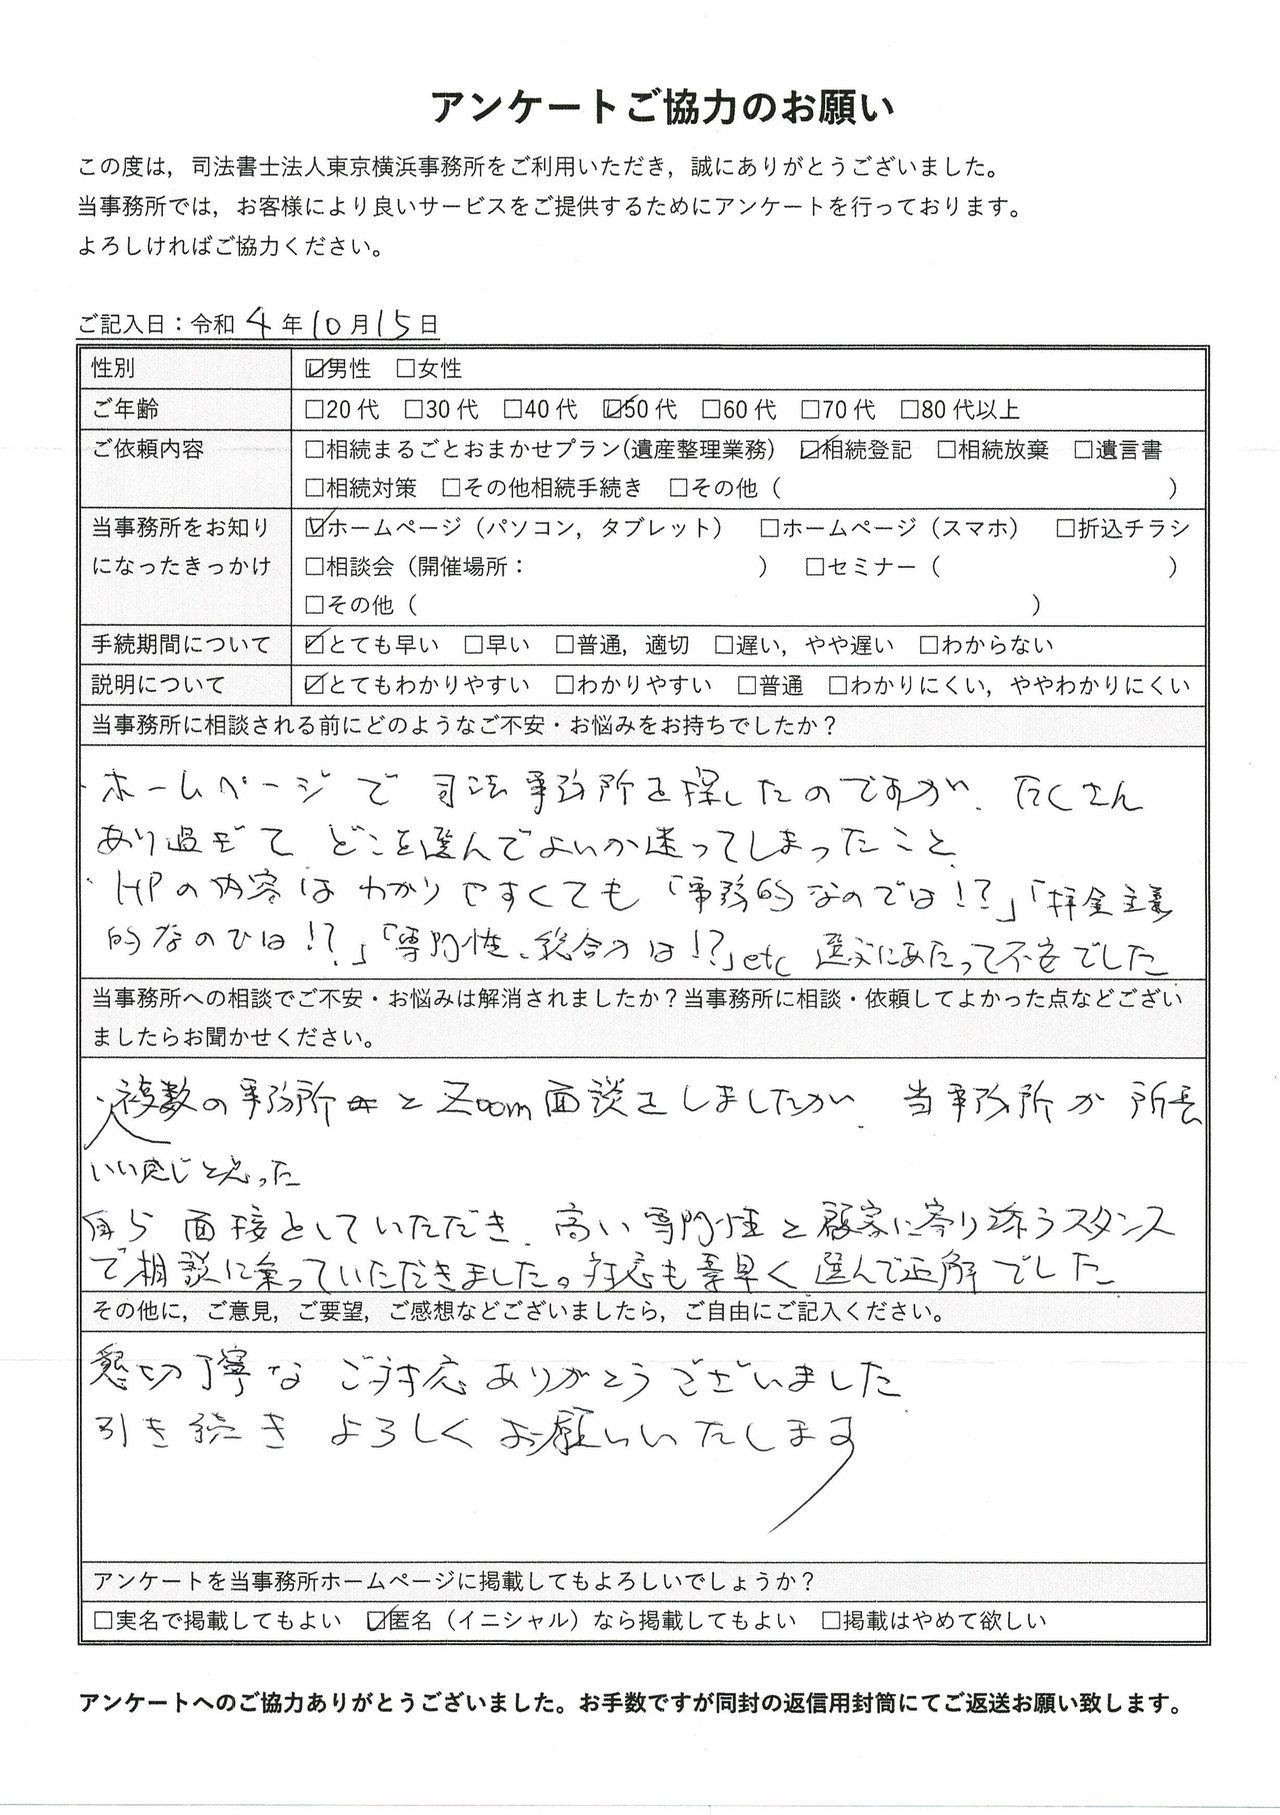 アンケートご協力のお願い
この度は，司法書士法人東京横浜事務所をご利用いただき，誠にありがとうございました。
当事務所では，お客様により良いサービスをご提供するためにアンケートを行っております。
よろしければご協力ください。
ご記入日：令和 4 年 10 月 15 日
性別 ☑男性 □女性
ご年齢 □20 代 □30 代 □40 代 ☑50 代 □60 代 □70 代 □80 代以上
ご依頼内容 □相続まるごとおまかせプラン(遺産整理業務) ☑相続登記 □相続放棄 □遺言書
□相続対策 □その他相続手続き □その他（ ）
当事務所をお知り ☑ホームページ（パソコン，タブレット） □ホームページ（スマホ） □折込チラシ
になったきっかけ □相談会（開催場所： ） □セミナー（ ）
□その他（ ）
手続期間について ☑とても早い □早い □普通，適切 □遅い，やや遅い □わからない
説明について ☑とてもわかりやすい □わかりやすい □普通 □わかりにくい，ややわかりにくい
当事務所に相談される前にどのようなご不安・お悩みをお持ちでしたか？
・ホームページで司法事務所を探したのですが、たくさん
あり過ぎて どこを選んでよいか迷ってしまったこと
・HPの内容はわかりやすくても「事務的なのでは!?」「拝金主義
的なのでは!?」「専門性、総合力は!?」etc 選ぶにあたって不安でした
当事務所への相談でご不安・お悩みは解消されましたか？当事務所に相談・依頼してよかった点などござい
ましたらお聞かせください。
・複数の事務所とZoom面談をしましたが、当事務所が所長
いい感じと思った
自ら 面接としていただき、高い専門性と顧客に寄り添うスタンス
で相談に乗っていただきました。対応も素早く 選んで正解でした
その他に，ご意見，ご要望，ご感想などございましたら，ご自由にご記入ください。
懇切丁寧な ご対応ありがとうございました
引き続き よろしくお願いいたします
アンケートを当事務所ホームページに掲載してもよろしいでしょうか？
□実名で掲載してもよい ☑匿名（イニシャル）なら掲載してもよい □掲載はやめて欲しい
アンケートへのご協力ありがとうございました。お手数ですが同封の返信用封筒にてご返送お願い致します。